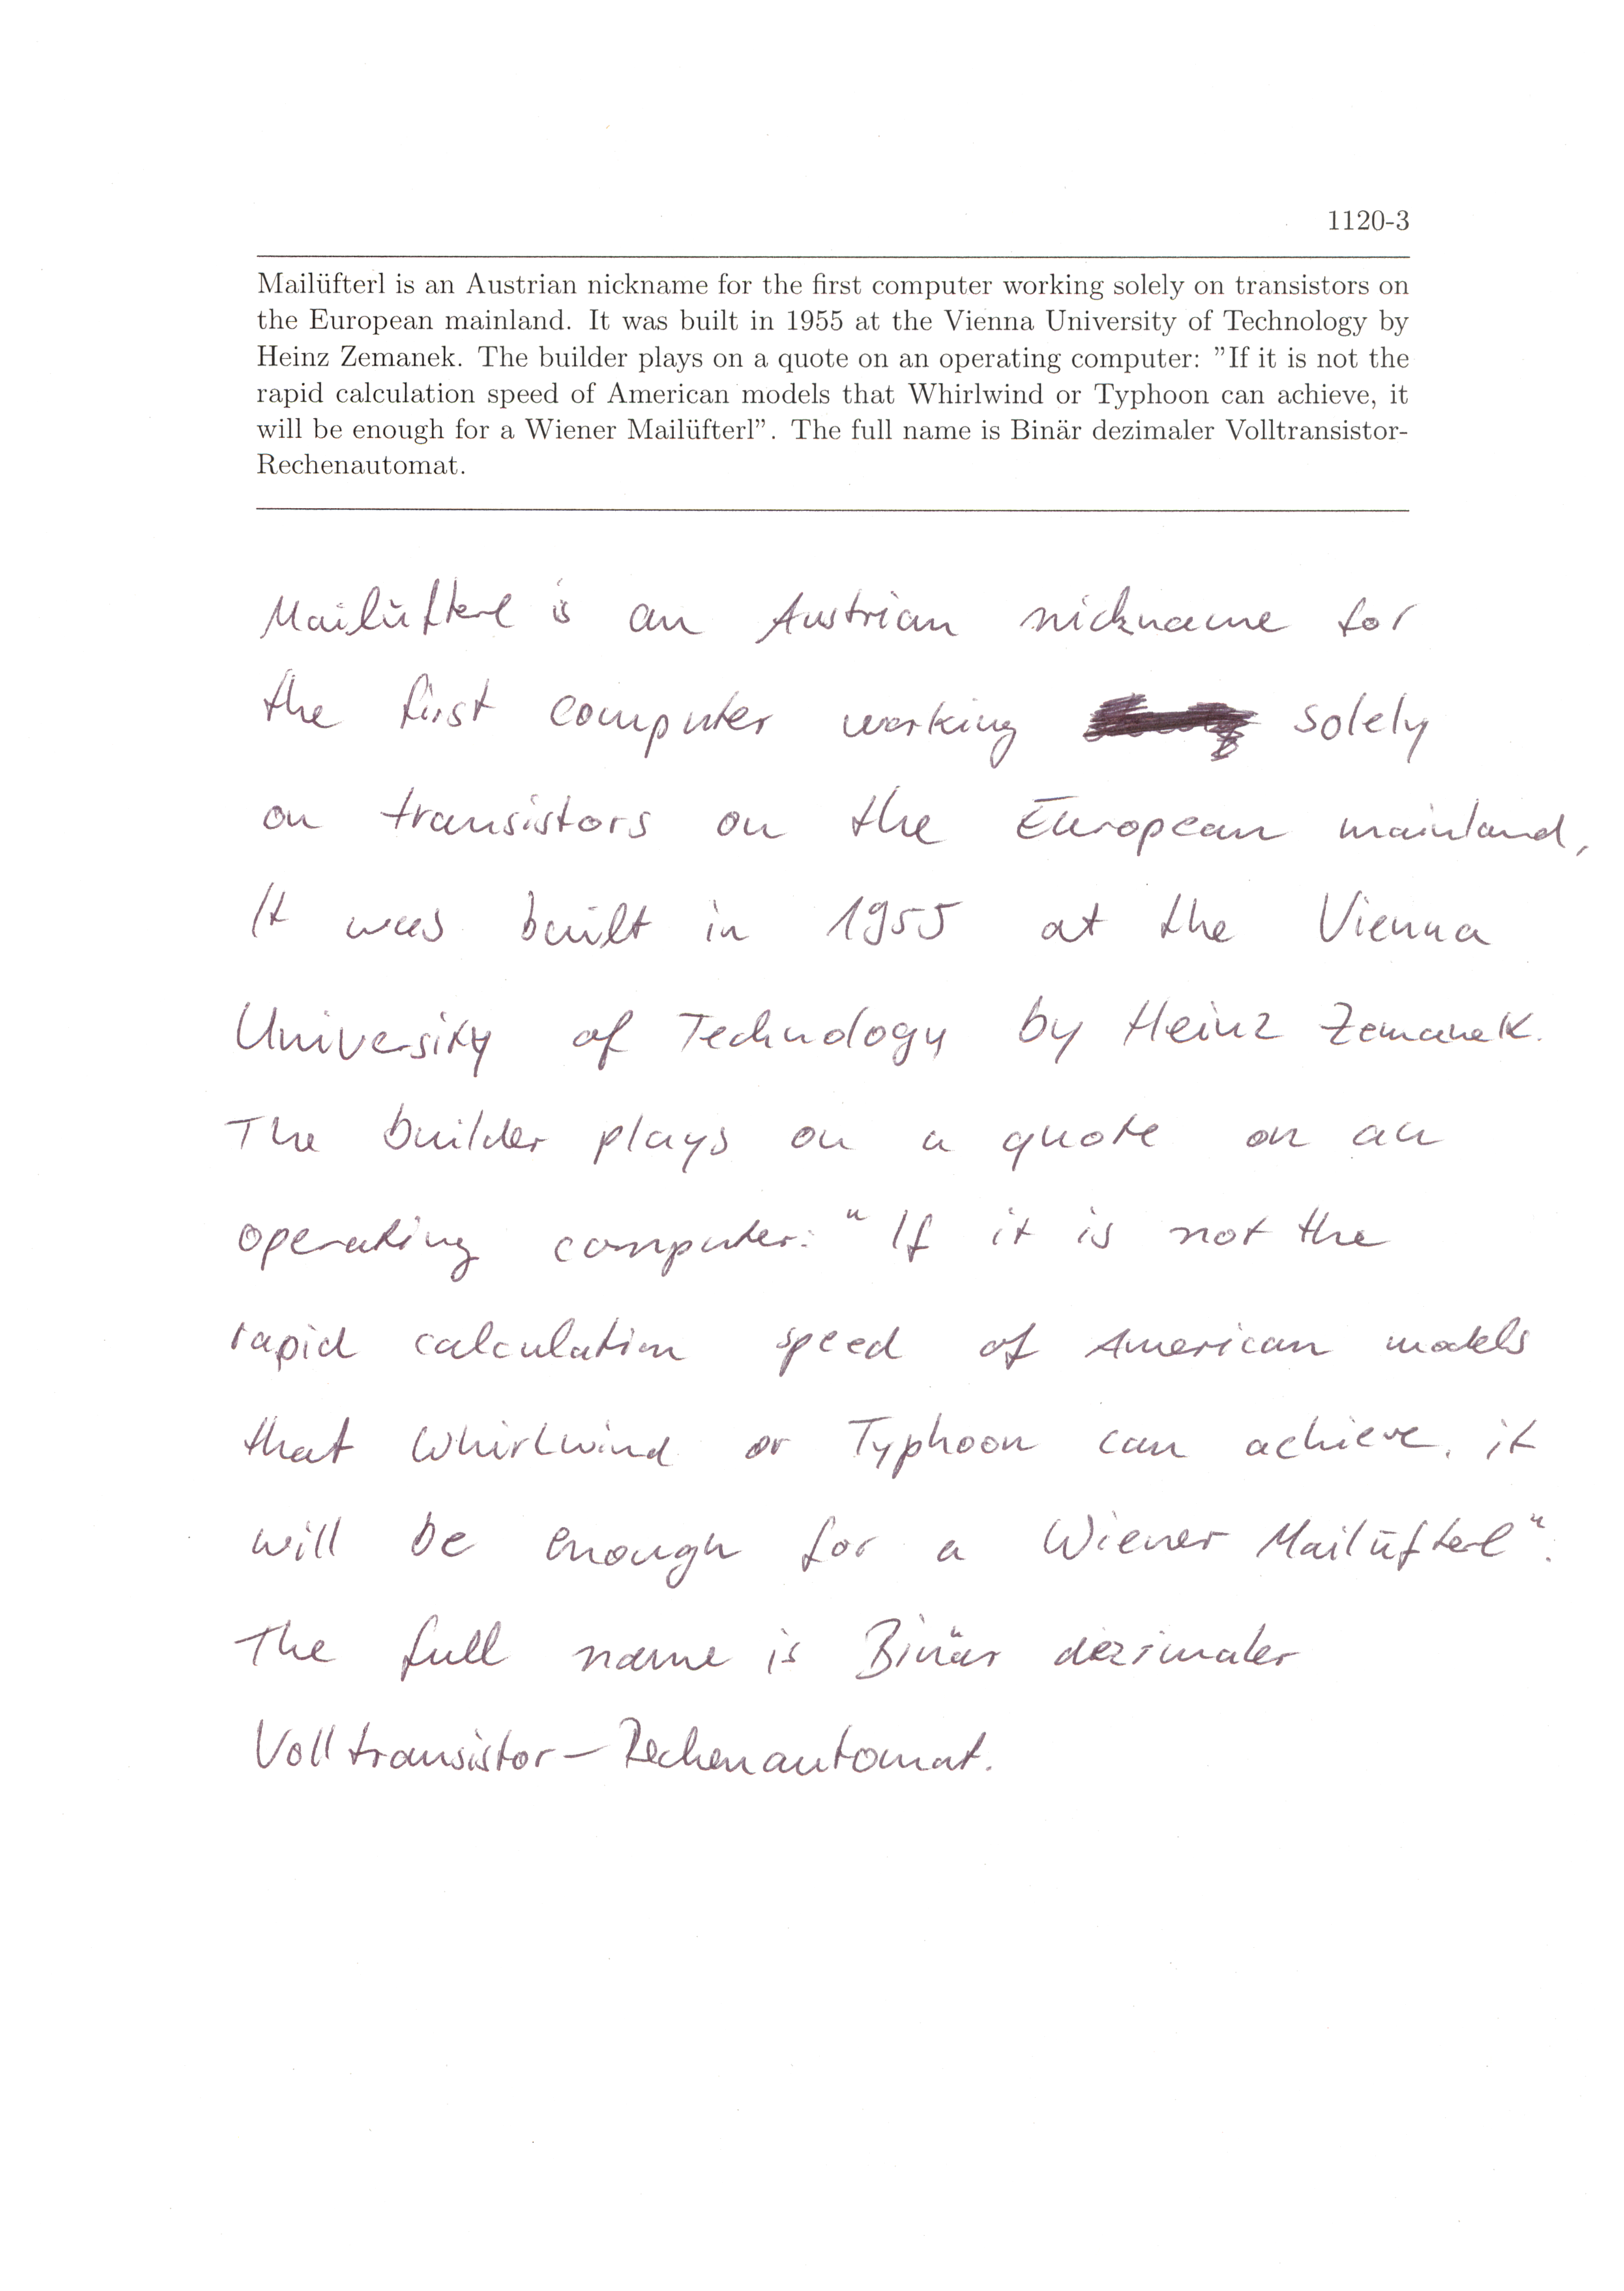 1120-3
Mailüfterl is an Austrian nickname for the first computer working solely on transistors on
the European mainland. It was built in 1955 at the Vienna University of Technology by
Heinz Zemanek. The builder plays on a quote on an operating computer: ”If it is not the
rapid calculation speed of American models that Whirlwind or Typhoon can achieve, it
will be enough for a Wiener Mailüfterl”. The full name is Binär dezimaler Volltransistor-
Rechenautomat.
Mailüfterl is an Austrian nickname for
the first computer working solely
on transistors on the European mainland,
It was built in 1955 at the Vienna
University of Technology by Heinz Zemanek.
The builder plays on a quote on an
operating computer: “If it is not the
rapid calculation speed of American models
that Whirlwind or Typhoon can achieve, it
will be enough for a Wiener Mailüfterl“.
The full name is Binär dezimaler
Volltransistor-Rechenautomat.